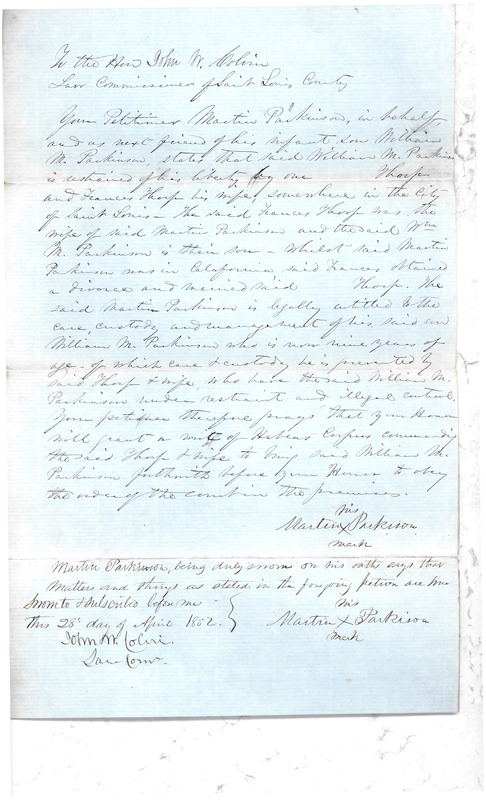 To the Hon John W. Colvin
Law Commissioner of Saint Louis County
Your Petitioner Martin Parkinson, in behalf
and as next friend of his infant son William
M. Parkinson, states that said William M. Parkinson
is restrained of his liberty by one Thorp
and Frances Thorp his wife, somewhere in the City
of Saint Louis – The said Frances Thorp was the
wife of said Martin Parkinson and the said Wm
M. Parkinson is their son – whilst said Martin
Parkinson was in California, said Frances obtained
a divorce and married said Thorp. The
said Martin Parkinson is legally entitled to the
care, custody and management of his said son
William M. Parkinson who is now nine years of
age – of which care & custody he is prevented by
said Thorp & wife, who have the said William M.
Parkinson under restraint and illegal control.
Your petitioner therefore prays that your Honor
will grant a writ of Habeas Corpus commanding
the said Thorp & wife to bring said William M.
Parkinson forthwith before your Honor to obey
the order of the court in the premises.
his
Martin X Parkison
mark
Martin Parkinson, being duly sworn on his oath says that
matters and things as stated in the foregoing petition are true
Sworn to & subscribed before me
this 28th day of April 1852.
his
Martin X Parkison
mark
John W. Colvin
Law Comr.